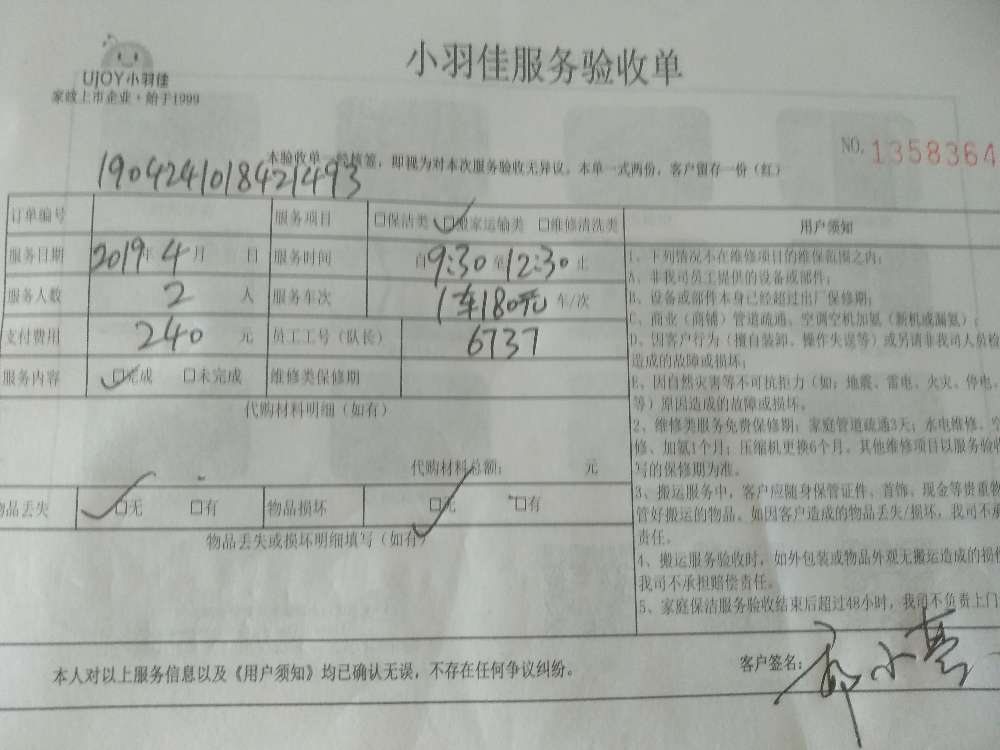 小羽佳服务验收单
UJOY小羽佳
家政上市企业·始于1999
NO. 1358364
本验收单一经核签，即视为对本次服务验收无异议。本单一式两份，客户留存一份（红）
190424101842l493
订单编号 服务项目 □保洁类 □搬家运输类 □维修清洗类 用户须知
服务日期 2019年4月 日 服务时间 自9:30至12:30止
服务人数 2 人 服务车次 1车180元 车/次
支付费用 240 元 员工工号（队长） 6737
服务内容 □完成 □未完成 维修类保修期
代购材料明细（如有）
代购材料总额： 元
物品丢失 □无 □有 物品损坏 □无 □有
物品丢失或损坏明细填写（如有）
1、下列情况不在维修项目的维保范围之内：
A、非我司员工提供的设备或部件；
B、设备或部件本身已经超过出厂保修期；
C、商业（商铺）管道疏通、空调空机加氨（新机或漏氨）；
D、因客户行为（擅自装卸、操作失误等）或另请非我司人员检
造成的故障或损坏；
E、因自然灾害等不可抗拒力（如：地震、雷电、火灾、停电、
等）原因造成的故障或损坏。
2、维修类服务免费保修期：家庭管道疏通3天；水电维修、空
修、加氨1个月；压缩机更换6个月。其他维修项目以服务验收
写的保修期为准。
3、搬运服务中，客户应随身保管证件、首饰、现金等贵重物
管好搬运的物品。如因客户造成的物品丢失/损坏，我司不承
责任。
4、搬运服务验收时，如外包装或物品外观无搬运造成的损
我司不承担赔偿责任。
5、家庭保洁服务验收结束后超过48小时，我司不负责上门
本人对以上服务信息以及《用户须知》均已确认无误，不存在任何争议纠纷。
客户签名：